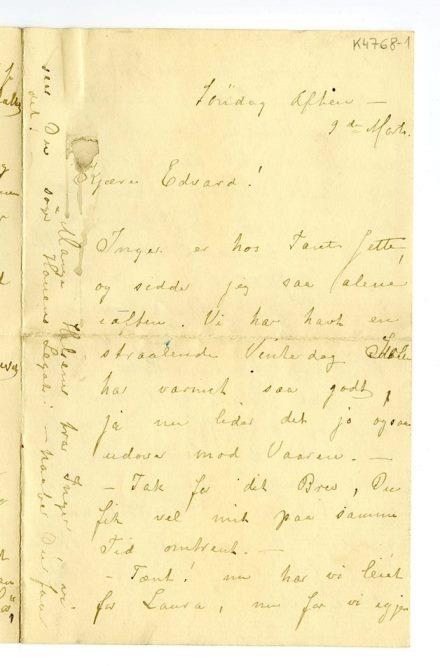 K4768-1
Söndag Aften —
9de Marts.
Kjære Edvard!
Inger er hos Tante Jette,
og sidder jeg saa alene
iaften. Vi har havt en
straalende Vinterdag Solen
har varmet saa godt,
ja nu lider det jo ogsaa
udover mod Vaaren. —
— Tak for dit Brev, Du
fik vel mit paa samme
Tid omtrent. —
— Tænk! nu har vi leiet
for Laura, nu faar vi igjen
Mange Hilsener fra Inger
ser Du söge Havens Legat! — naar bare Du faar
det! —